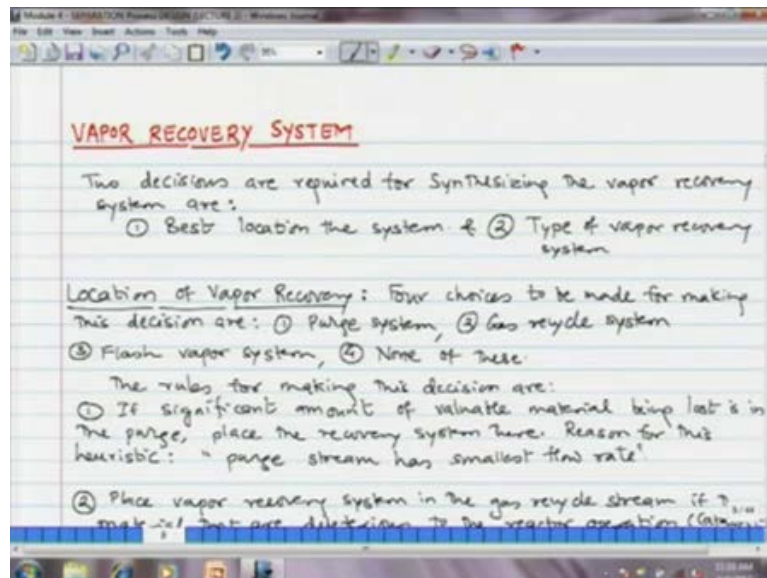 Module 4 - SEPARATION Process DESIGN (LECTURE 2) - Windows Journal
File Edit View Insert Actions Tools Help
VAPOR RECOVERY SYSTEM
Two decisions are required for Synthesizing The vapor recovery
system are:
① Best location the system & ② Type of vapor recovery
system
Location of Vapor Recovery: Four choices to be made for making
This decision are: ① Purge system, ② Gas recycle system
③ Flash vapor system, ④ None of These.
The rules for making This decision are:
① If significant amount of valuable material being lost is in
The purge, place the recovery system here. Reason for this
heuristic: "purge stream has smallest flow rate"
② Place vapor recovery system in the gas recycle stream if
that are deleterious to the reactor operation